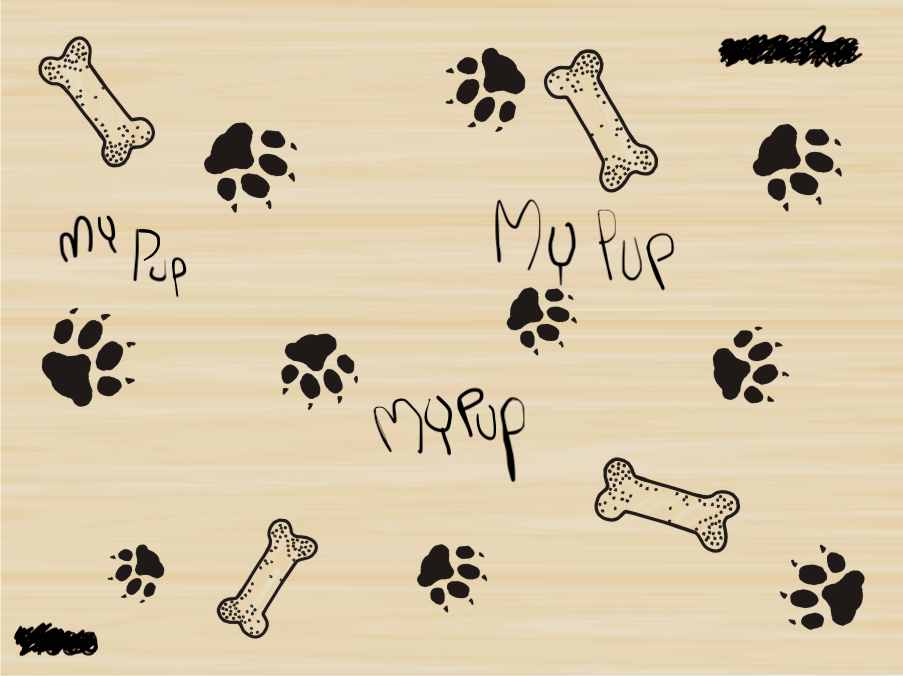 My Pup
My Pup
My Pup